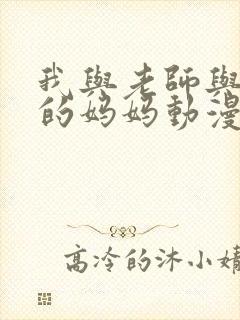 我與老師與
的妈妈動漫
高冷的沐小婧